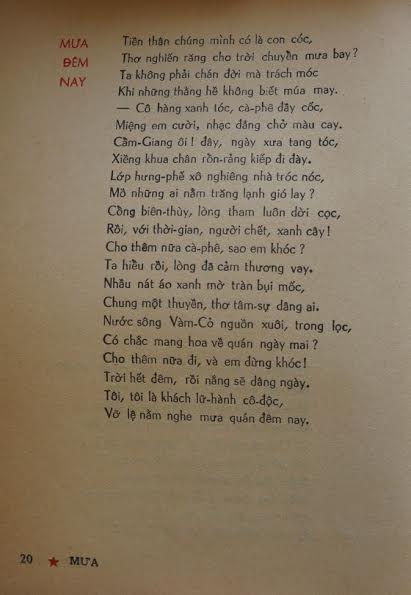 MƯA
ĐÊM
NAY
Tiền thân chúng mình có là con cóc,
Thơ nghiến răng cho trời chuyển mưa bay?
Ta không phải chán đời mà trách móc
Khi những thằng hề không biết múa may.
— Cô hàng xanh tóc, cà-phê đầy cốc,
Miệng em cười, nhạc đắng chở màu cay.
Cẩm-Giang ôi! đây, ngày xưa tang tóc,
Xiềng khua chân rổn-rảng kiếp đi đày.
Lớp hưng-phế xô nghiêng nhà tróc nóc,
Mồ những ai nằm trăng lạnh gió lay?
Cồng biên-thùy, lòng tham luôn dời cọc,
Rồi, với thời-gian, người chết, xanh cây!
Cho thêm nữa cà-phê, sao em khóc?
Ta hiểu rồi, lòng đã cảm thương vay.
Nhầu nát áo xanh mờ tràn bụi mốc,
Chung một thuyền, thơ tâm-sự dâng ai.
Nước sông Vàm-Cỏ nguồn xuôi, trong lọc,
Có chắc mang hoa về quán ngày mai?
Cho thêm nữa đi, và em đừng khóc!
Trời hết đêm, rồi nắng sẽ dâng ngày.
Tôi, tôi là khách lữ-hành cô-độc,
Vỡ lệ nằm nghe mưa quán đêm nay.
20 ★ MƯA